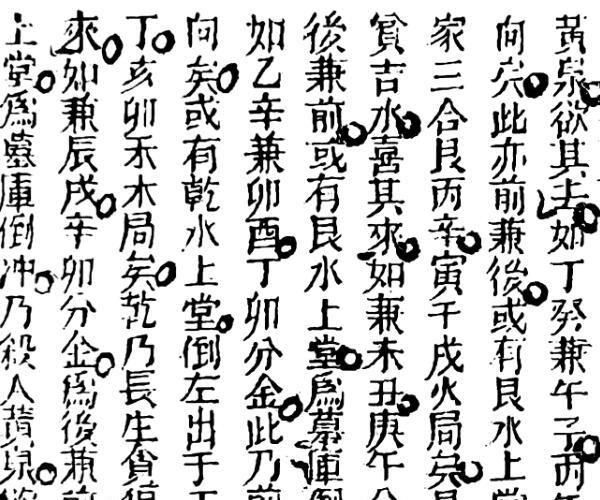 黃泉欲其去如丁癸兼午子丙
向矣此亦前兼後或有艮水上
家三合艮丙辛寅午戌火局矣
貧吉水喜其來如兼未丑庚午
後兼前或有艮水上堂爲墓庫
如乙辛兼卯酉丁卯分金此乃
向矣或有乾水上堂倒左出于
丁亥卯禾木局矣乾乃長生貪
來如兼辰戌辛卯分金爲後兼
上堂爲墓庫倒冲乃殺人黃泉